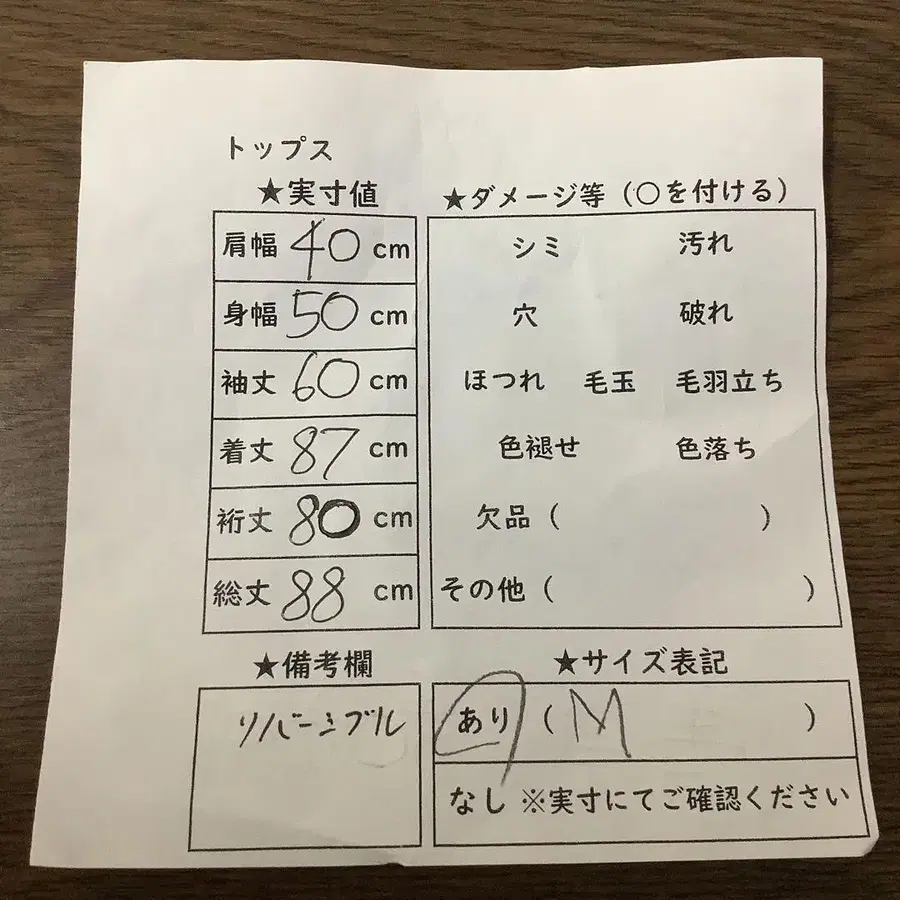 トップス
★実寸値
肩幅 40 cm
身幅 50 cm
袖丈 60 cm
着丈 87 cm
裄丈 80 cm
総丈 88 cm
★ダメージ等（○を付ける）
シミ 汚れ
穴 破れ
ほつれ 毛玉 毛羽立ち
色褪せ 色落ち
欠品（ ）
その他（ ）
★備考欄
リバーシブル
★サイズ表記
あり（M ）
なし ※実寸にてご確認ください